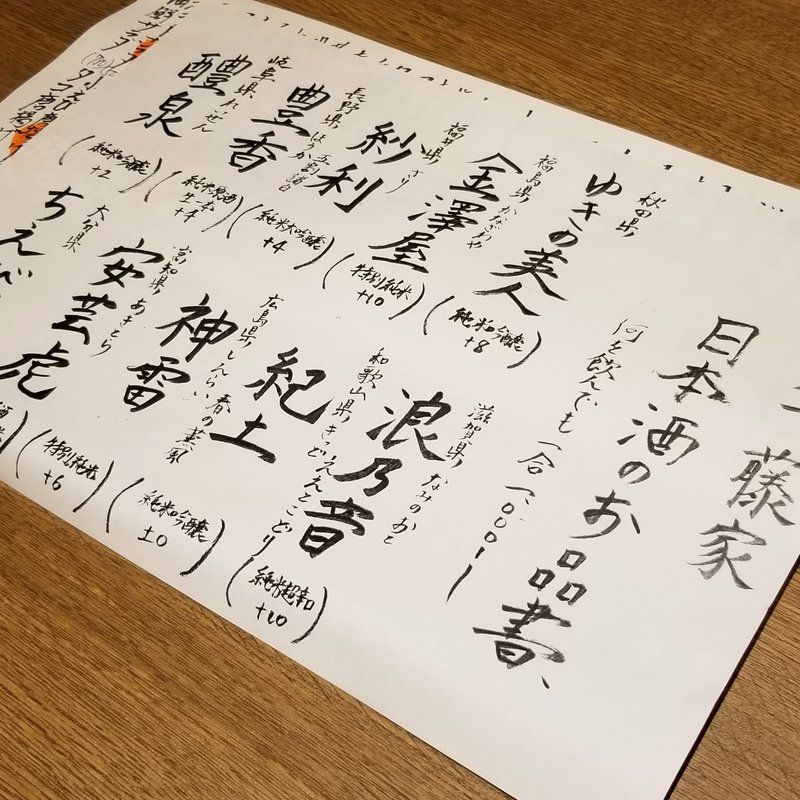 藤家
日本酒のお品書、
何を飲んでも一合一、〇〇〇ー
秋田県
ゆきの美人
(純米吟醸 +8)
福島県 かなざわや
金澤屋
(特別純米 +10)
福井県 さり
紗利
五割諸白
(純米大吟醸 +4)
長野県 ほうか
豊香
(純米原酒 生一本 +4)
岐阜県 れいせん
醴泉
(純米吟醸 +2)
滋賀県 なみのおと
浪乃音
(純米超辛口 +10)
和歌山県 きっど ええとこどり
紀土
(純米吟醸 ±0)
広島県 しんらい 春の英風
神雷
(特別純米 +6)
高知県 あきとら
安芸虎
大分県
ちえび